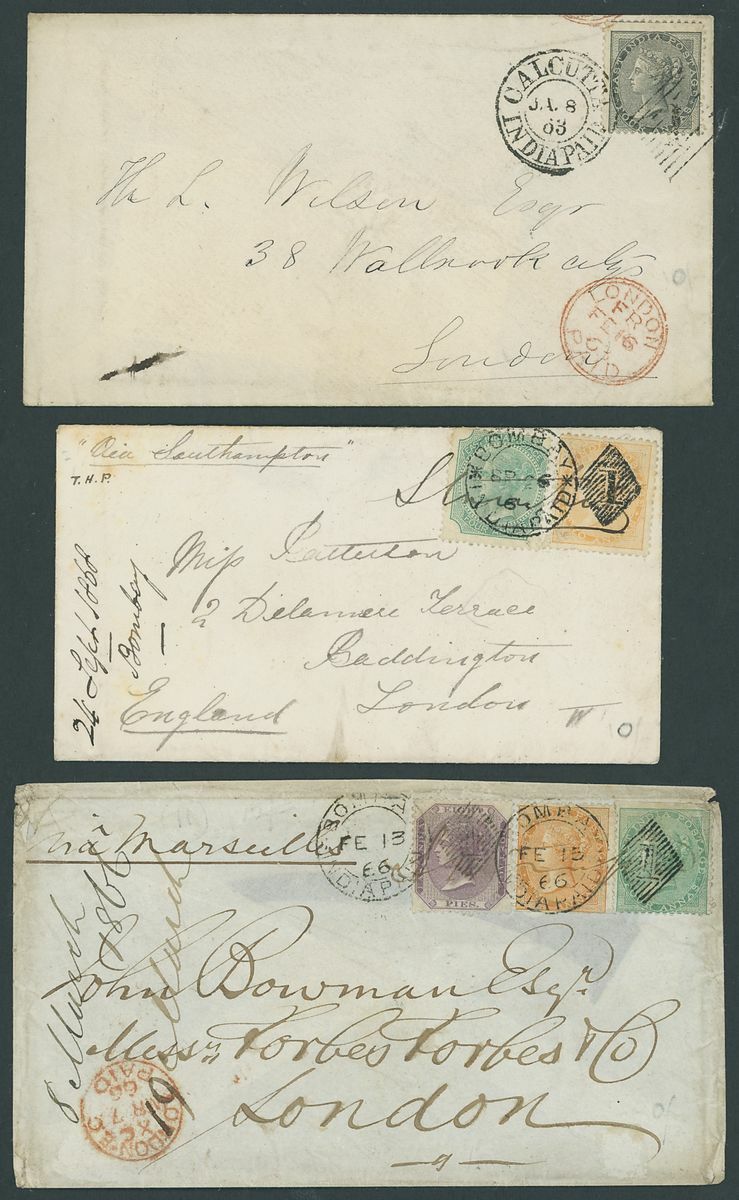 CALCUTTA
JA. 8
63
INDIA PAID
EAST INDIA POSTAGE
H L. Wilson Esqr
38 Wallbrook City
London
LONDON
FR
PAID
"Via Southampton"
T.H.P.
BOMBAY
INDIA PAID
1
24 Sept 1868
Bombay
Miss Patterson
2 Delamere Terrace
Paddington
London
England
Via Marseille
BOMBAY
FE 13
66
INDIA PAID
EIGHT
PIES.
BOMBAY
FE 13
66
INDIA PAID
1
ANNAS
8 March 1866
March
John Bowman Esqr.
Messrs Forbes Forbes & Co
London
LONDON
PAID